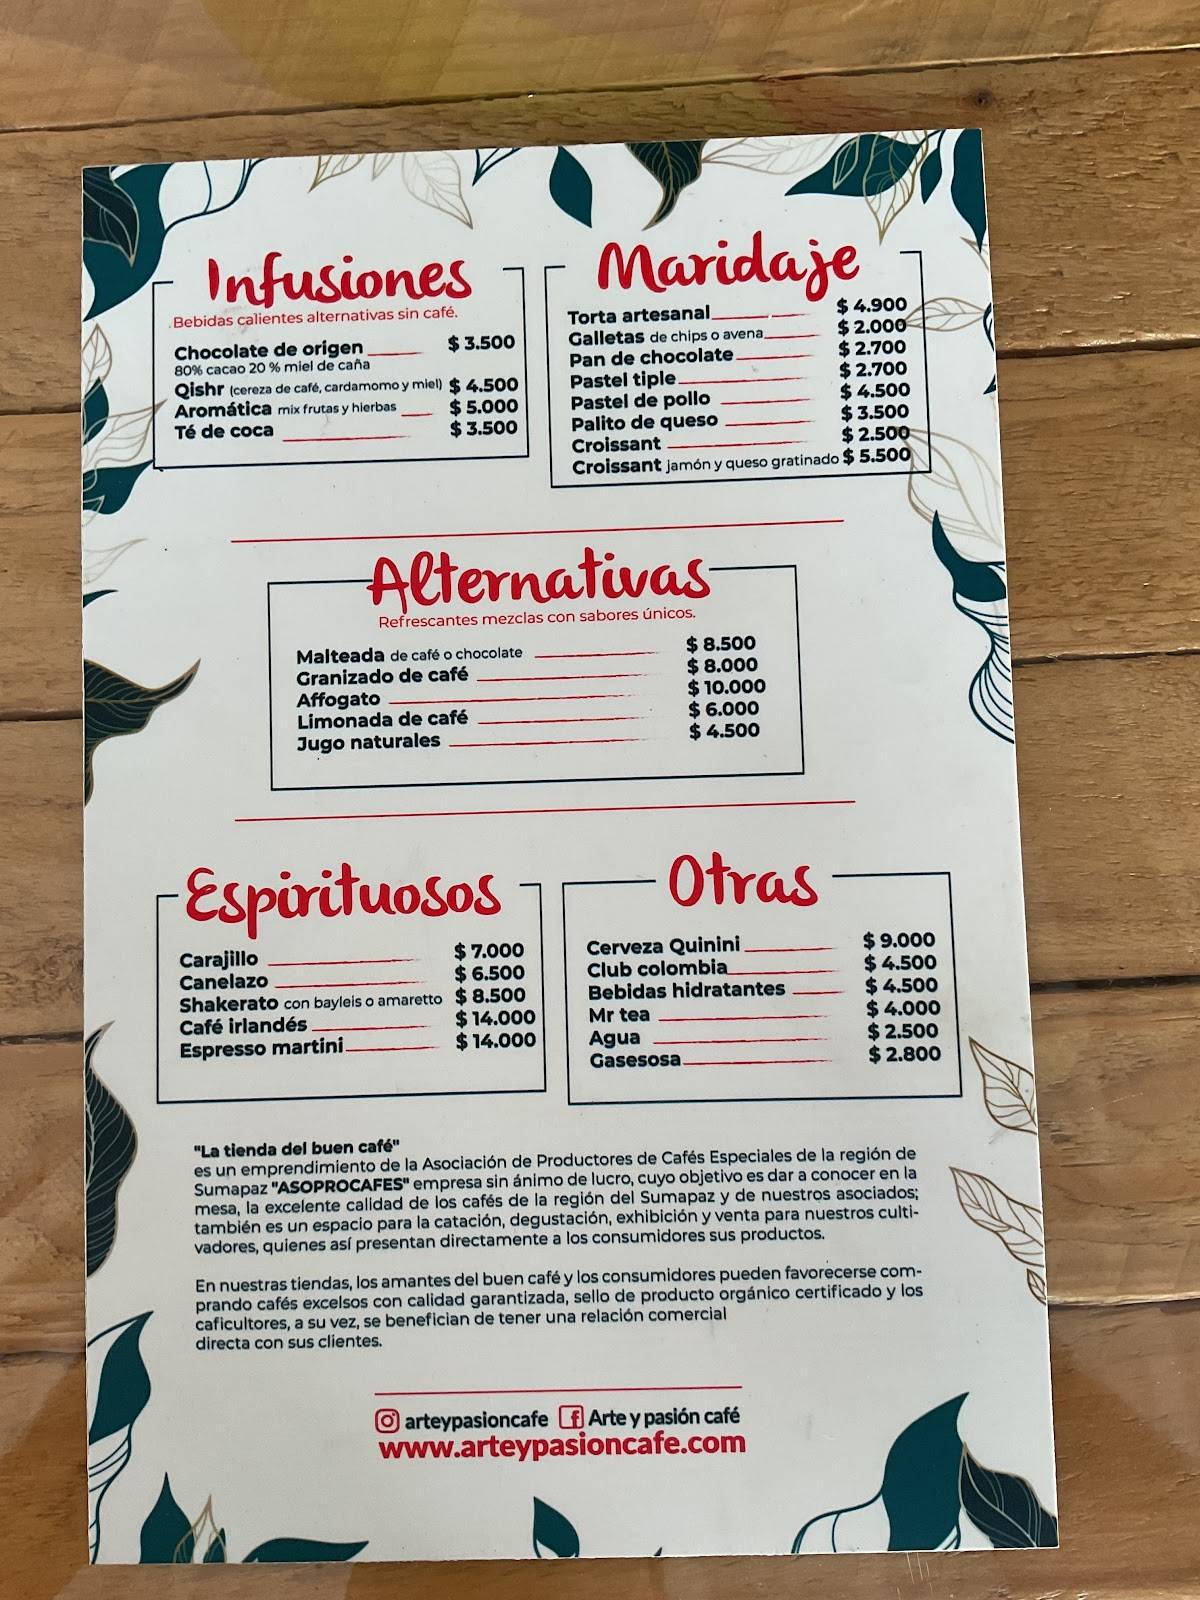 Infusiones
Bebidas calientes alternativas sin café.
Chocolate de origen $ 3.500
80% cacao 20 % miel de caña
Qishr (cereza de café, cardamomo y miel) $ 4.500
Aromática mix frutas y hierbas $ 5.000
Té de coca $ 3.500
Maridaje
Torta artesanal $ 4.900
Galletas de chips o avena $ 2.000
Pan de chocolate $ 2.700
Pastel tiple $ 2.700
Pastel de pollo $ 4.500
Palito de queso $ 3.500
Croissant $ 2.500
Croissant jamón y queso gratinado $ 5.500
Alternativas
Refrescantes mezclas con sabores únicos.
Malteada de café o chocolate $ 8.500
Granizado de café $ 8.000
Affogato $ 10.000
Limonada de café $ 6.000
Jugo naturales $ 4.500
Espirituosos
Carajillo $ 7.000
Canelazo $ 6.500
Shakerato con bayleis o amaretto $ 8.500
Café irlandés $ 14.000
Espresso martini $ 14.000
Otras
Cerveza Quinini $ 9.000
Club colombia $ 4.500
Bebidas hidratantes $ 4.500
Mr tea $ 4.000
Agua $ 2.500
Gasesosa $ 2.800
"La tienda del buen café"
es un emprendimiento de la Asociación de Productores de Cafés Especiales de la región de
Sumapaz "ASOPROCAFES" empresa sin ánimo de lucro, cuyo objetivo es dar a conocer en la
mesa, la excelente calidad de los cafés de la región del Sumapaz y de nuestros asociados;
también es un espacio para la catación, degustación, exhibición y venta para nuestros culti-
vadores, quienes así presentan directamente a los consumidores sus productos.
En nuestras tiendas, los amantes del buen café y los consumidores pueden favorecerse com-
prando cafés excelsos con calidad garantizada, sello de producto orgánico certificado y los
caficultores, a su vez, se benefician de tener una relación comercial
directa con sus clientes.
arteypasioncafe f Arte y pasión café
www.arteypasioncafe.com